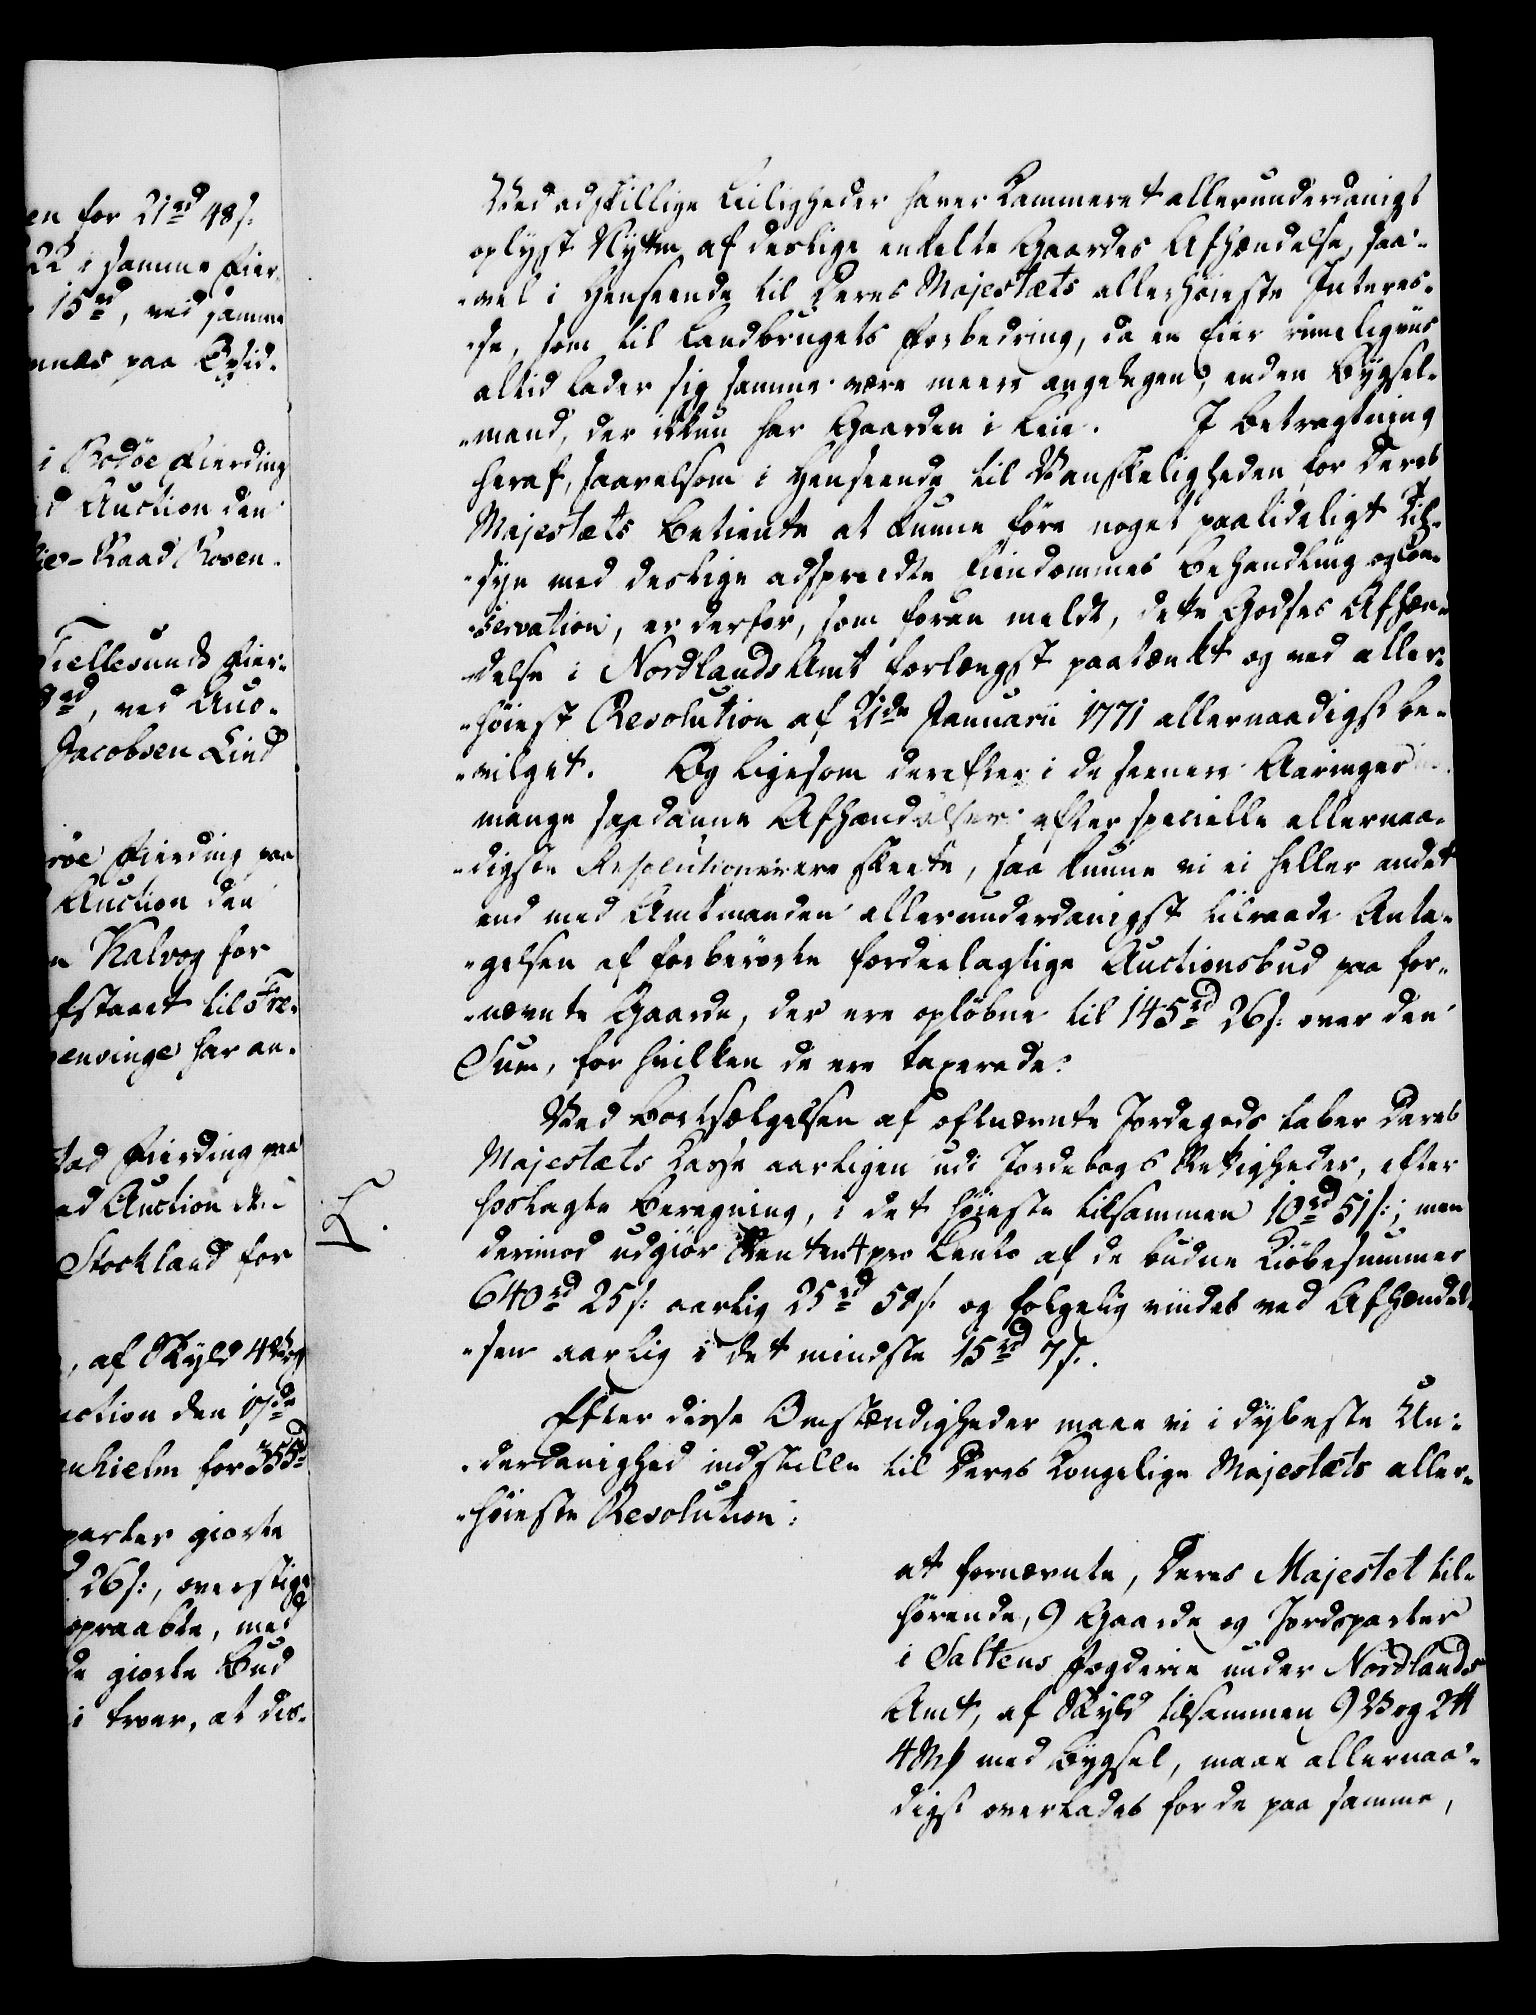 en for 21rd 48s:
22 i samme Fier-
15rd, ved samme
nnæs paa Opsid-
i Bodøe Fierding
d Auction den
ie-Raad Rosen-
Fiellesunds Fier-
rd, ved Auc-
Jacobsen Lind
røe Fierding paa
Auction den
n Kalvog for
fstaaet til Fre-
envinge har an-
stad Fierding paa
ed Auction den
Stockland for
, af Skyld 4
uction den 17de
nhielm for 355rd
parter giorte
26s:, overstige
opraabte, med
de giorte Bud
i troer, at des-
Ved adskillige Leiligheder haver Kammeret allerunderdanigst
oplyst Nytten af deslige enkelte Gaardes Afhændelse, saa-
-vel i Henseende til Deres Majestæts allerhøieste Interes-
-se, som til Landbrugets Forbedring, da en Eier rimeligviis
altid lader sig samme være meere angelegen, end en Bygsel-
-mand, der ikkun har Gaarden i Leie. I Betragtning
heraf, saavelsom i Henseende til Vanskeligheden for Deres
Majestæts Betiente at kunne føre noget paalideligt Til-
-syn med deslige adspredte Eiendommes Behandling og Con-
-servation, er derfor, som foran meldt, dette Godses Afhæn-
-delse i Nordlands Amt forlængst paatænkt og ved aller-
-høiest Resolution af 21de Januarii 1771 allernaadigst be-
-vilget. Og ligesom derefter i de seenere Aaringer
mange saadanne Afhændelser efter specielle allernaa-
-digste Resolutioner ere skeete, saa kunne vi ei heller andet
end med Amtmanden allerunderdanigst tilraade Anta-
-gelsen af forberørte fordeelagtige Auctionsbud paa for-
-nævnte Gaarde, der ere opløbne til 145rd 26s: over den
Sum, for hvilken de ere taxerede.
Ved Bortsælgelsen af oftnævnte Jordegods taber Deres
Majestæts Casse aarligen udi Jordebogs Rettigheder, efter
L. hoslagte Beregning, i det høieste tilsammen 10rd 51s:; men
derimod udgiør Renten 4 pro Cento af de budne Kiøbesummer
640rd 25s: aarlig 25rd 58s: og følgelig vindes ved Afhændel-
-sen aarlig i det mindste 15rd 7s:.
Efter disse Omstændigheder maae vi i dybeste Un-
-derdanighed indstille til Deres Kongelige Majestæts aller-
-høieste Resolution:
at fornævnte, Deres Majestet til-
hørende, 9 Gaarde og Jordsparter
i Saltens Fogderie under Nordlands
Amt, af Skyld tilsammen 9 Vog 2 ℔
4 Mk med Bygsel, maae allernaa-
digst overlades for de paa samme,